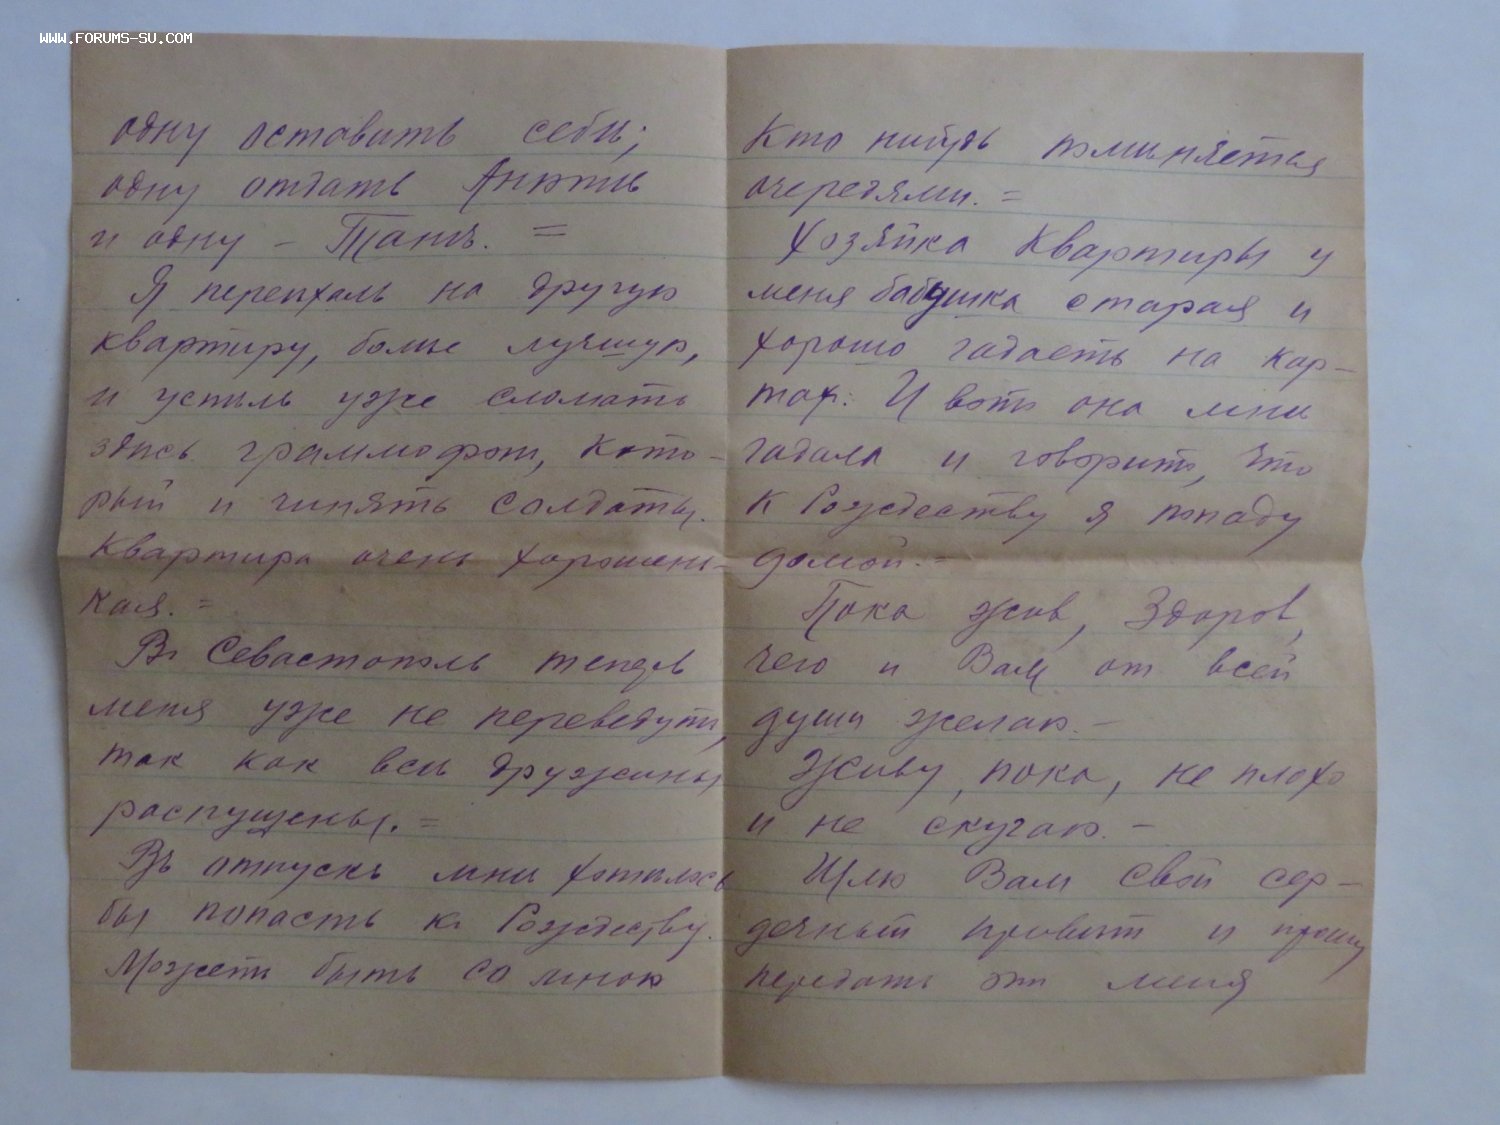 WWW.FORUMS-SU.COM
одну оставить себѣ;
одну отдать Анютѣ
и одну – Танѣ. =
Я переѣхалъ на другую
квартиру, болѣе лучшую,
и успѣлъ уже сломать
здѣсь граммофон, кото-
рый и чинятъ солдаты.
Квартира очень хорошень-
кая. =
Въ Севастополь теперь
меня уже не переведутъ,
так как всѣ дружины
распущены. =
Въ отпускъ мнѣ хотѣлось
бы попасть къ Рождеству.
Можетъ быть со мною
Кто нибудь помѣняется
очередями. =
Хозяйка квартиры у
меня бабушка старая и
хорошо гадаетъ на кар-
тах. И вотъ она мнѣ
гадала и говоритъ, что
к Рождеству я попаду
домой. =
Пока жив, здоров,
чего и Вам от всей
души желаю. –
Живу, пока, не плохо
и не скучаю. –
Шлю Вам свой сер-
дечный привѣт и прошу
передать от меня